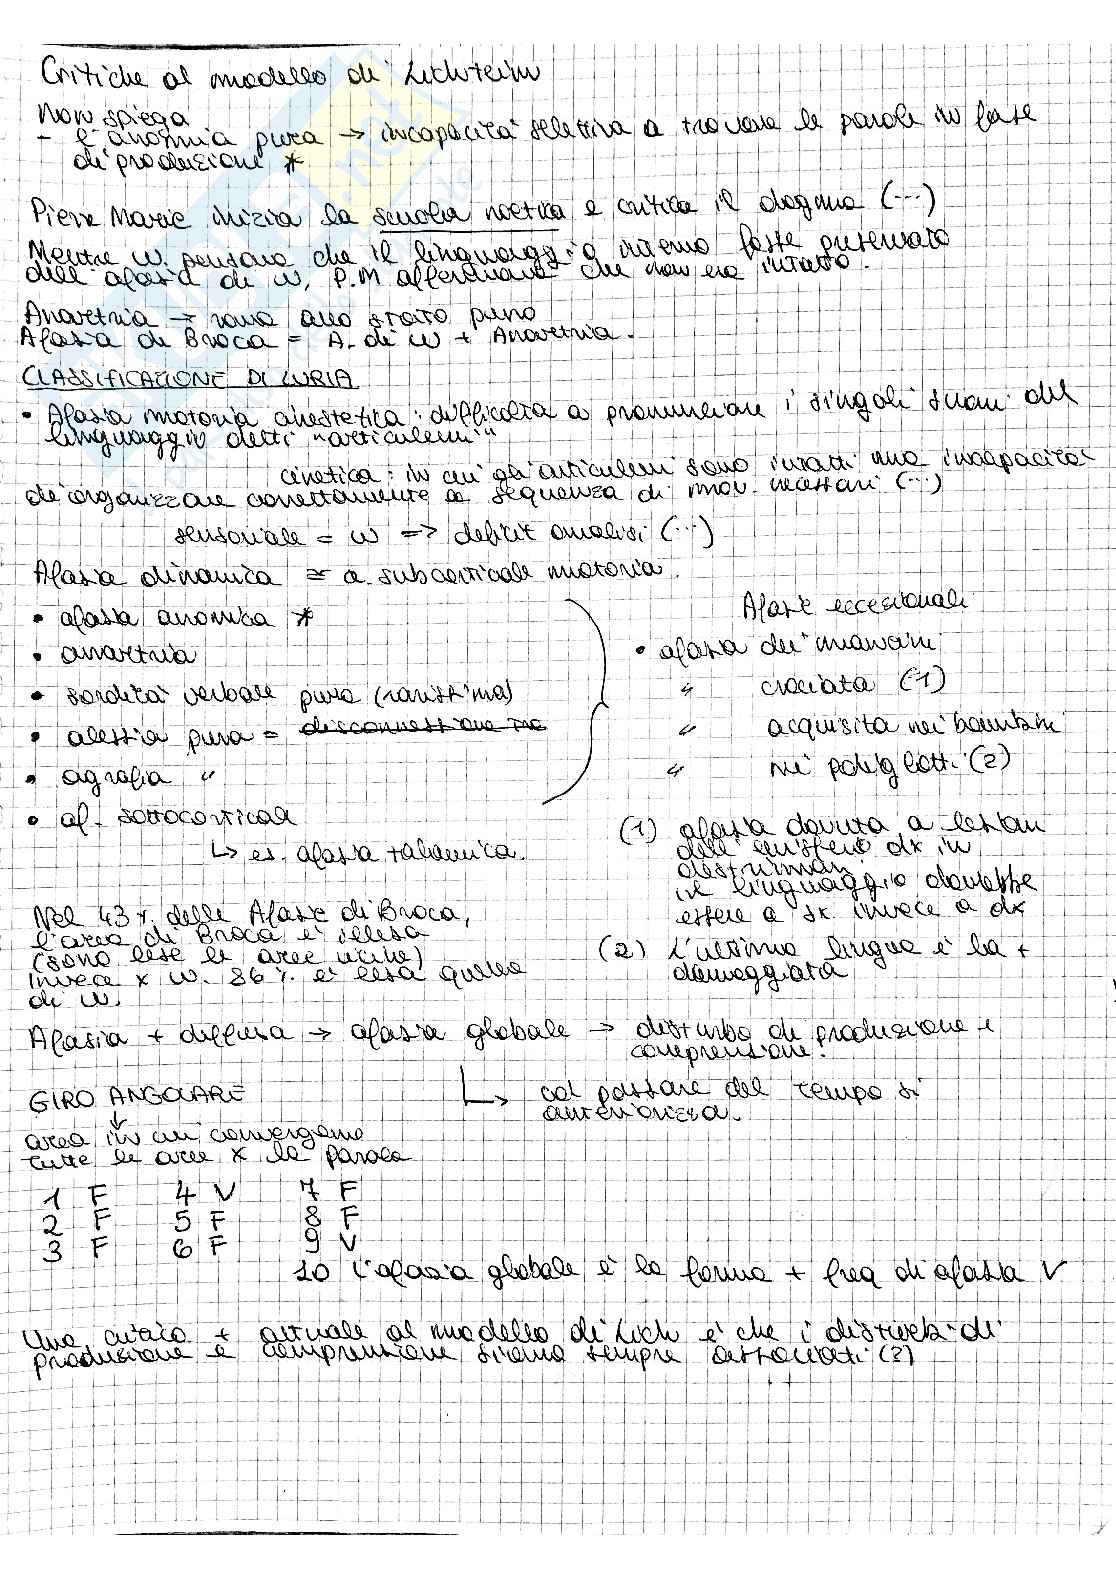 Critiche al modello di Lichteim
Non spiega
- l'anomia pura → incapacità selettiva a trovare le parole in fase
di produzione *
Pierre Marie inizia la scuola noetica e critica il dogma (...)
Mentre W. pensava che il linguaggio interno fosse preservato
nell'afasia di W, P.M affermava che non era intatto.
Anartria → rara allo stato puro
Afasia di Broca = A. di W + Anartria.
CLASSIFICAZIONE DI LURIA
• Afasia motoria cinestetica: difficoltà a pronunciare i singoli suoni del
linguaggio detti "articulemi"
cinetica: in cui gli articulemi sono intatti ma incapacità
di organizzare correttamente la sequenza di mov. necessari (...)
sensoriale = W => deficit analisi (...)
Afasia dinamica ≃ a. subcorticale motoria.
• afasia anomica *
• anartria
• sordità verbale pura (rarissima)
• alessia pura = disconnessione
• agrafia "
• af. sottocorticale
↳ es. afasia talamica.
Afasie eccezionali
• afasia dei mancini
" crociata (1)
" acquisita nei bambini
" nei poliglotti (2)
(1) afasia dovuta a lesioni
dell'emisfero dx in
destrimani
il linguaggio dovrebbe
essere a sx invece a dx
(2) L'ultima lingua è la +
danneggiata
Nel 43% delle Afasie di Broca,
l'area di Broca è illesa
(sono lese le aree vicine)
Invece x W. 86% è lesa quella
di W.
Afasia + diffusa → afasia globale → disturbo di produzione e
comprensione.
↳ col passare del tempo si
anteriorizza.
GIRO ANGOLARE
↓
area in cui convergono
tutte le aree x la parola
1 F 4 V 7 F
2 F 5 F 8 F
3 F 6 F 9 V
10 L'afasia globale è la forma + freq di afasia V
Una critica + attuale al modello di Lich è che i disturbi di
produzione e comprensione siano sempre associati (?)